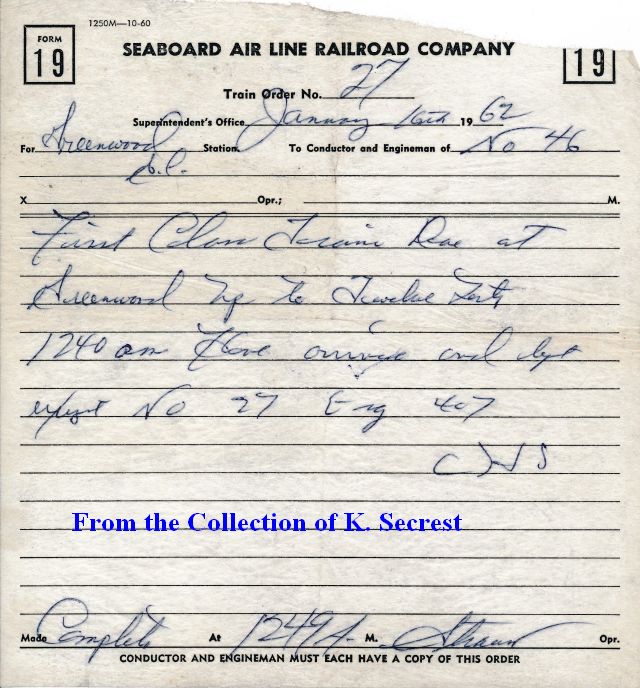 1250M—10-60
FORM 19
SEABOARD AIR LINE RAILROAD COMPANY
19
Train Order No. 27
Superintendent's Office January 16th 1962
For Greenwood Station To Conductor and Engineman of No 46
S.C.
X Opr.; M.
First Class Trains Due at
Greenwood Up to Twelve Forty
1240 am Have arrived and left
except No 27 Eng 407
From the Collection of K. Secrest
Made Complete At 1249 A. M. Opr.
CONDUCTOR AND ENGINEMAN MUST EACH HAVE A COPY OF THIS ORDER